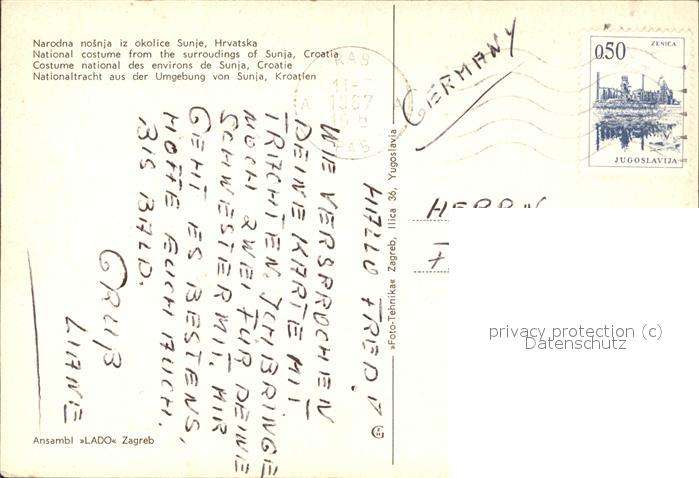 Narodna nošnja iz okolice Sunje, Hrvatska
National costume from the surroudings of Sunja, Croatia
Costume national des environs de Sunja, Croatie
Nationaltracht aus der Umgebung von Sunja, Kroatien
RAB
1967
RAB
GERMANY
0.50
ZENICA
JUGOSLAVIJA
HALLO FRED!
WIE VERSPROCHEN
DEINE KARTE MIT
TRACHTEN. ICH BRINGE
NOCH ZWEI FÜR DEINE
SCHWESTER MIT. MIR
GEHT ES BESTENS,
HOFFE EUCH AUCH.
BIS BALD.
GRUß
LIANE
»Foto-Tehnika« Zagreb, Ilica 36, Yugoslavia
HERRN
privacy protection (c)
Datenschutz
Ansambl »LADO« Zagreb